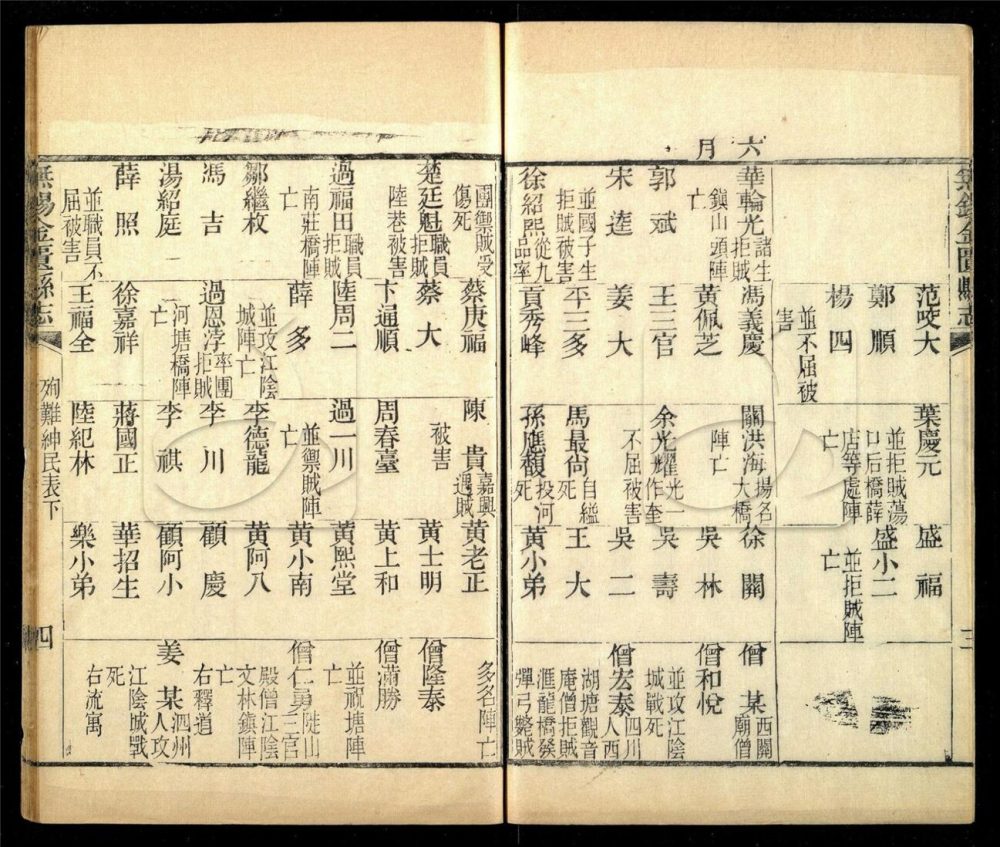 無錫金匱縣志
三
范咬大
鄭順
楊四
並不屈被
害
葉慶元
並拒賊蕩
口后橋薛
店等處陣
亡
盛福
盛小二
並拒賊陣
亡
六月
華輪光諸生
拒賊
鎮山頭陣
亡
郭斌
宋逵
並國子生
拒賊被害
徐紹熙從九
品率
馮義慶
黃佩芝
王三官
姜大
平三多
貢秀峰
闞洪海揚名
大橋
陣亡
余光耀光一
作奎
不屈被害
馬最尙自縊
死
孫應馥投河
死
徐關
吳林
吳壽
吳二
王大
黃小弟
僧某西關
廟僧
僧和悅
並攻江陰
城戰死
僧宏泰四川
人西
湖塘觀音
庵僧拒賊
滙龍橋發
彈弓斃賊
團禦賊受
傷死
楚廷魁職員
拒賊
陸巷被害
過福田職員
拒賊
南莊橋陣
亡
鄒繼枚
馮吉
湯紹庭
薛照
並職員不
屈被害
蔡庚福
蔡大
卞通順
陸周二
薛多
並攻江陰
城陣亡
過恩浡率團
拒賊
河塘橋陣
亡
徐嘉祥
王福全
陳貴嘉興
遇賊
被害
周春臺
過一川
並禦賊陣
亡
李德龍
李川
李祺
蔣國正
陸紀林
黃老正
黃士明
黃上和
黃熙堂
黃小南
黃阿八
顧慶
顧阿小
華招生
樂小弟
多名陣亡
僧隆泰
僧瀟勝
並祝塘陣
亡
僧仁勇陡山
三官
殿僧江陰
文林鎮陣
亡
右釋道
姜某泗州
人攻
江陰城戰
死
右流寓
無錫金匱縣志
殉難紳民表下
四